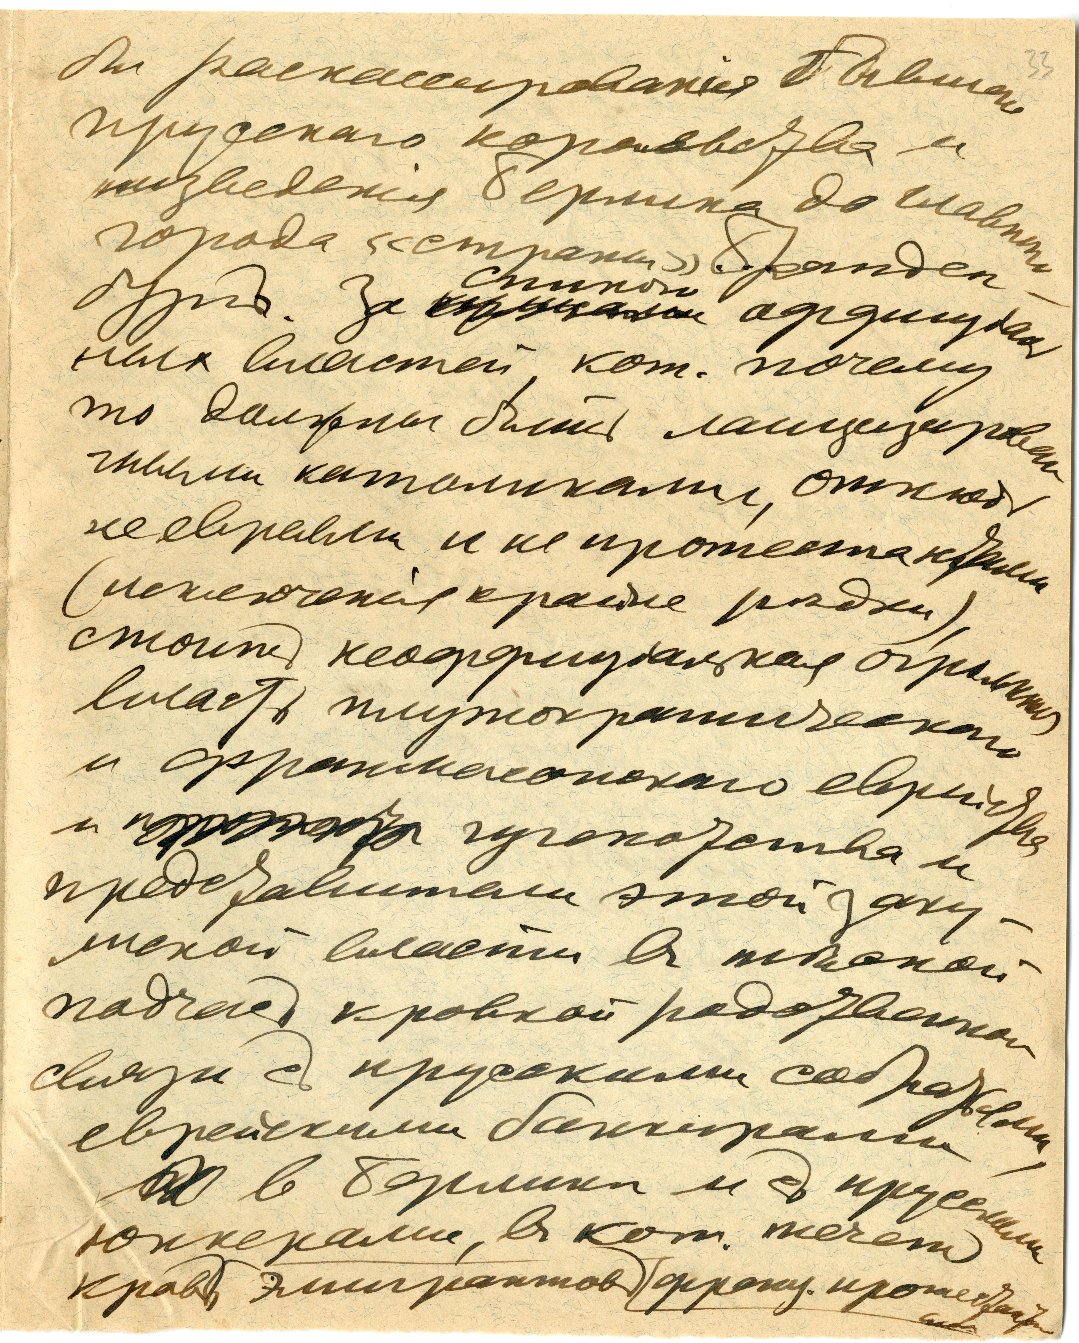 33
бы раскассированія бывшаго
прусскаго королевства и
низведенія Берлина до главнаго
города «страны» Бранден-
бургъ. За спиной оффиціаль
ныхъ властей, кот. почему
то должны быть
ными католиками, отнюдь
не евреями и не протестантами
(исключенія крайне рѣдки),
стоитъ неоффиціальная огромная
власть плутократическаго
и франмасонскаго еврейства
и гугенотства и
представители этой заку-
лисной власти въ тѣсной
подчасъ кровной родственной
связи съ прусскими собратьями,
еврейскими банкирами
въ Берлинѣ и съ прусскими
юнкерами, въ кот. течетъ
кровь эмигрантовъ (франц. протестант